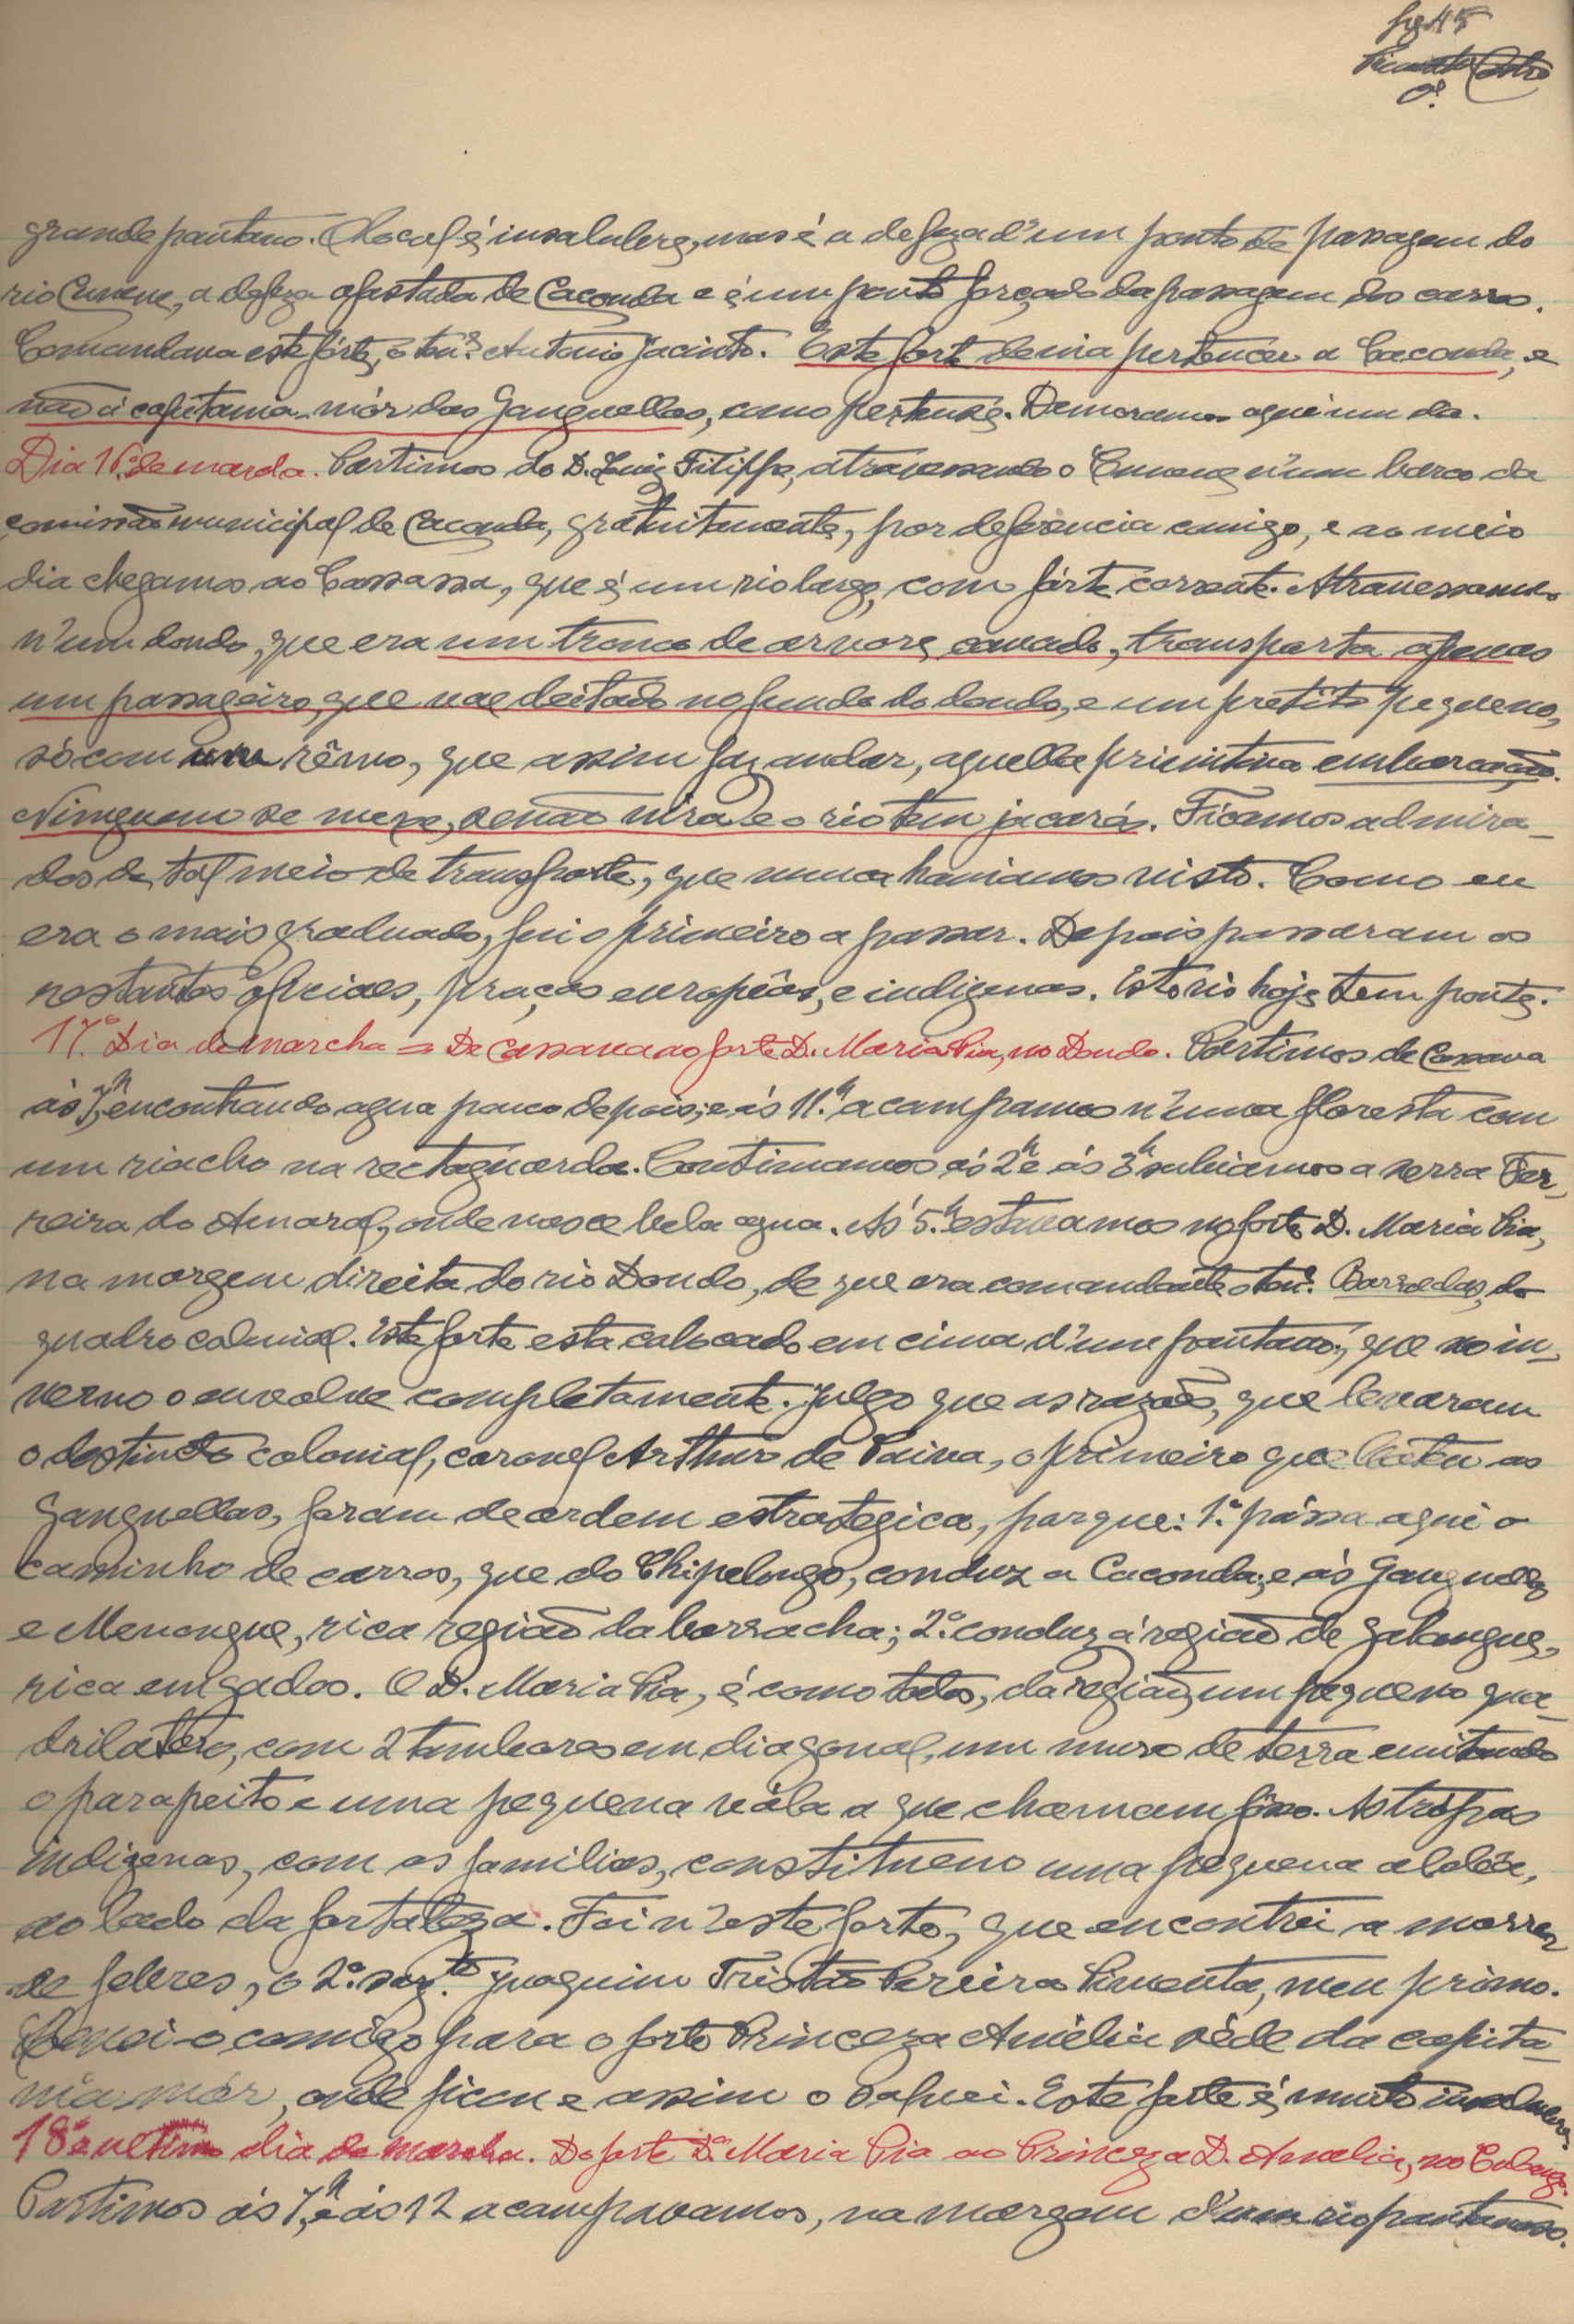 fg 45
grande pantano. O local é insalubre, mas é a defeza d'um ponto de passagem do
rio Cunene, a defeza afastada de Caconda e é um ponto forçado da passagem dos carros.
Comandava este fórte, o ten.e Antonio Jacinto. Este forte devia pertencer a Caconda, e
não á capitania-mór dos Ganguellas, como pertence. Demoramos aqui um dia.
Dia 16.º de marcha. Partimos do D. Luiz Filippe, atravessando o Cunene n'um barco da
comissão municipal de Caconda, gratuitamente, por deferencia comigo, e ao meio
dia chegamos ao Cassassa, que é um rio largo, com fórte corrente. Atravessamo-
n'um dondo, que era um tronco de arvore, cavado, transporta apenas
um passageiro, que vae deitado no fundo do dondo, e um pretito pequeno,
só com um rêmo, que assim faz andar, aquella primitiva embarcação.
Ninguem se mexe, senão vira e o rio tem jacarés. Ficamos admira-
dos de tal meio de transporte, que nunca haviamos visto. Como eu
era o mais graduado, fui o primeiro a passar. Depois passaram os
restantes oficiaes, praças europêas, e indigenas. Este rio hoje tem ponte.
17.º Dia de marcha = De Cassava ao forte D. Maria Pia, no Dondo. Partimos de Cassava
ás 7h, encontrando agua pouco depois; e ás 11.h acampamos n'uma floresta com
um riacho na rectaguarda. Continuamos ás 2h e ás 3h subiamos a serra Fer-
reira do Amaral, onde nasce bela agua. Ás 5.h estavamos no forte D. Maria Pia,
na margem direita do rio Dondo, de que era comandante o ten.e Barradas, do
quadro colonial. Este forte esta colocado em cima d'um pantano, que no in-
verno o envolve completamente. Julgo que as razões, que levaram
o destincto colonial, coronel Arthur de Paiva, o primeiro que bateu os
Ganguellas, foram de ordem estrategica, porque: 1.º pássa aqui o
caminho de carros, que do Chipelongo, conduz a Caconda; e ás Ganguellas
e Menongue, rica região da borracha; 2.º conduz á região de Galangue,
rica em gados. O D. Maria Pia, é como todos, da região, um pequeno qua-
drilatero, com 2 tambores em diagonal, um muro de terra emitando
o parapeito e uma pequena vála a que chamam fôso. As trópas
indigenas, com as familias, constituem uma pequena aldeia,
ao lado da fortaleza. Foi n'este forte, que encontrei a morrer
de febres, o 2.º sarg.to Joaquim Tristão Pereira Pimenta, meu primo.
Levei-o comigo para o forte Princeza Amélia séde da capita-
nia mór, onde ficou e assim o salvei. Este forte é muito insalubre.
18.º e ultimo dia de marcha. Do forte D. Maria Pia ao Princeza D. Amelia, no Cubango.
Partimos ás 7h, e ás 12 acampavamos, na margem d'um rio pantanoso.